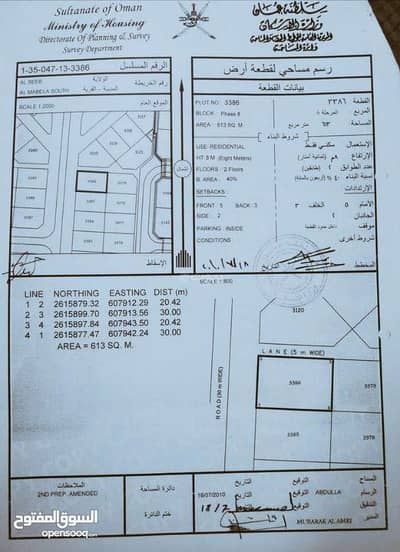 Sultanate of Oman
Ministry of Housing
Directorate Of Planning & Survey
Survey Department
سلطنة عمان
وزارة الإسكان
1-35-047-13-3386
الرقم المسلسل
رسم مساحي لقطعة أرض
AL SEEB
الولاية
رقم الخريطة
AL MABELA SOUTH
المدينة - القرية
بيانات القطعة
SCALE 1:2000
الموقع العام
PLOT NO: 3386
القطعة ٣٣٨٦
BLOCK: Phase 8
المربع المرحلة ٨
AREA: 613 SQ. M.
المساحة
متر مربع
شروط البناء
USE: RESIDENTIAL
الإستعمال سكني فقط
HT: 8 M (Eight Meters)
الإرتفاع
FLOORS: 2 Floors
عدد الطوابق
B. AREA: 40%
نسبة البناء
SETBACKS:
الإرتدادات
FRONT: 5 BACK: 3
الأمام ٥ الخلف ٣
SIDE: 2
الجانبان ٢
PARKING: INSIDE
موقف داخل حدود القطعة
CONDITIONS
شروط أخرى
الشمال
الإسقاط
التاريخ
المخطط
SCALE 1:800
LINE NORTHING EASTING DIST (m)
1 2 2615879.32 607912.29 20.42
2 3 2615899.70 607913.56 30.00
3 4 2615897.84 607943.50 20.42
4 1 2615877.47 607942.24 30.00
AREA = 613 SQ. M.
3120
LANE (5 m WIDE)
ROAD (30 m WIDE)
3386
3379
3385
3378
الملاحظات
2ND PREP. AMENDED
دائرة المساحة
ختم الدائرة
التاريخ
التوقيع
المساح
18/07/2010
التاريخ
ABDULLA
التوقيع
الرسام
التاريخ
التوقيع
التدقيق
MUBARAK AL AMRI
المدير
السوق المفتوح
opensooq.com